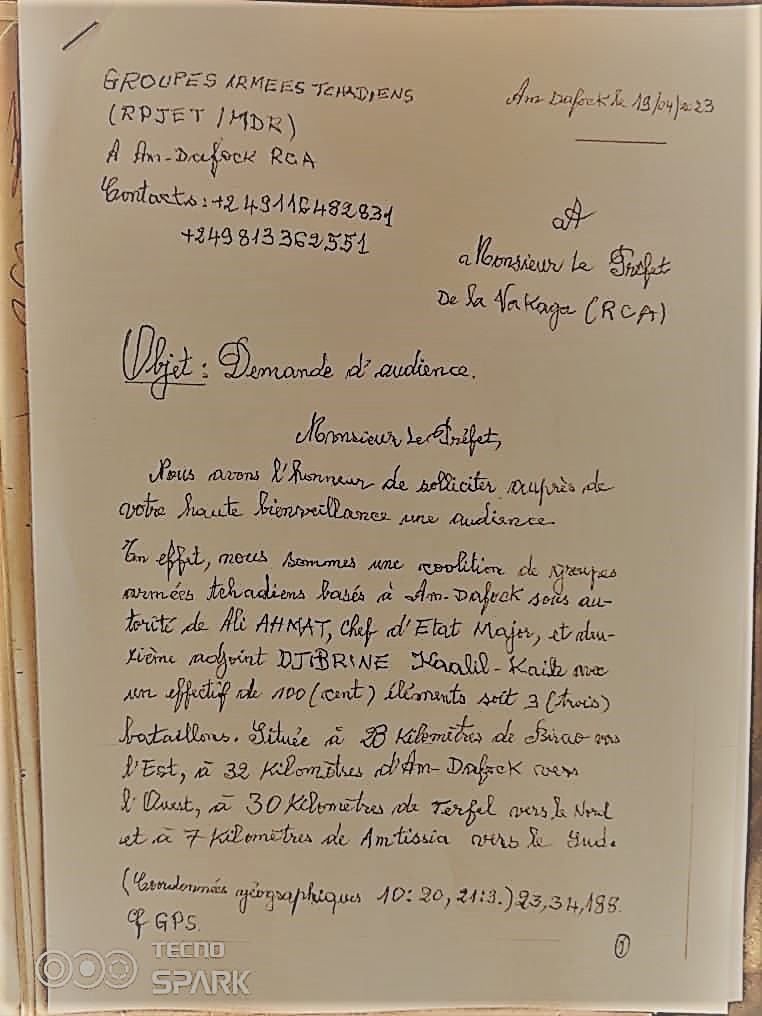 GROUPES ARMEES TCHADIENS
(RPJET / MDR)
A Am-Dafock RCA
Contacts : +249116482831
+249813362551
Am Dafock le 19/04/2023
A
Monsieur Le Préfet
De la Vakaga (RCA)
Objet : Demande d'audience.
Monsieur Le Préfet,
Nous avons l'honneur de solliciter auprès de
votre haute bienveillance une audience.
En effit, nous sommes une coolition de groupes
armées tchadiens basés à Am-Dafock sous au-
torité de Ali AHMAT, Chef d'Etat Major, et deu-
xième adjoint DJIBRINE Kaalil-Kaile avec
un effectif de 100 (cent) éléments soit 3 (trois)
bataillons. Située à 28 Kilomètres de Birao vers
l'Est, à 32 Kilomètres d'Am-Dafock vers
l'Ouest, à 30 Kilomètres de Terfel vers le Nord
et à 7 Kilomètres de Amtissia vers le Sud.
(Coordonnées géographiques 10:20, 21:3.) 23,34,188.
Cf GPS.
1
TECNO
SPARK